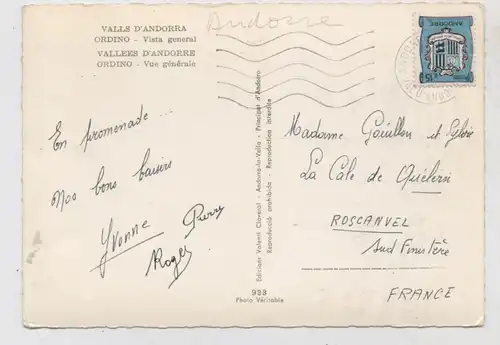 VALLS D'ANDORRA
ORDINO - Vista general
VALLEES D'ANDORRE
ORDINO - Vue générale
Andorre
ANDORRE
En promenade...
Nos bons baisers
Yvonne
Roger
Madame Gouillon et Sylvie
La Cale de Quélern
ROSCANVEL
Sud Finistère
FRANCE
Edicions Valenti Claverol - Andorra-la-Vella - Principat d'Andorra
Reproducció prohibida - Reproduction interdite
993
Photo Véritable